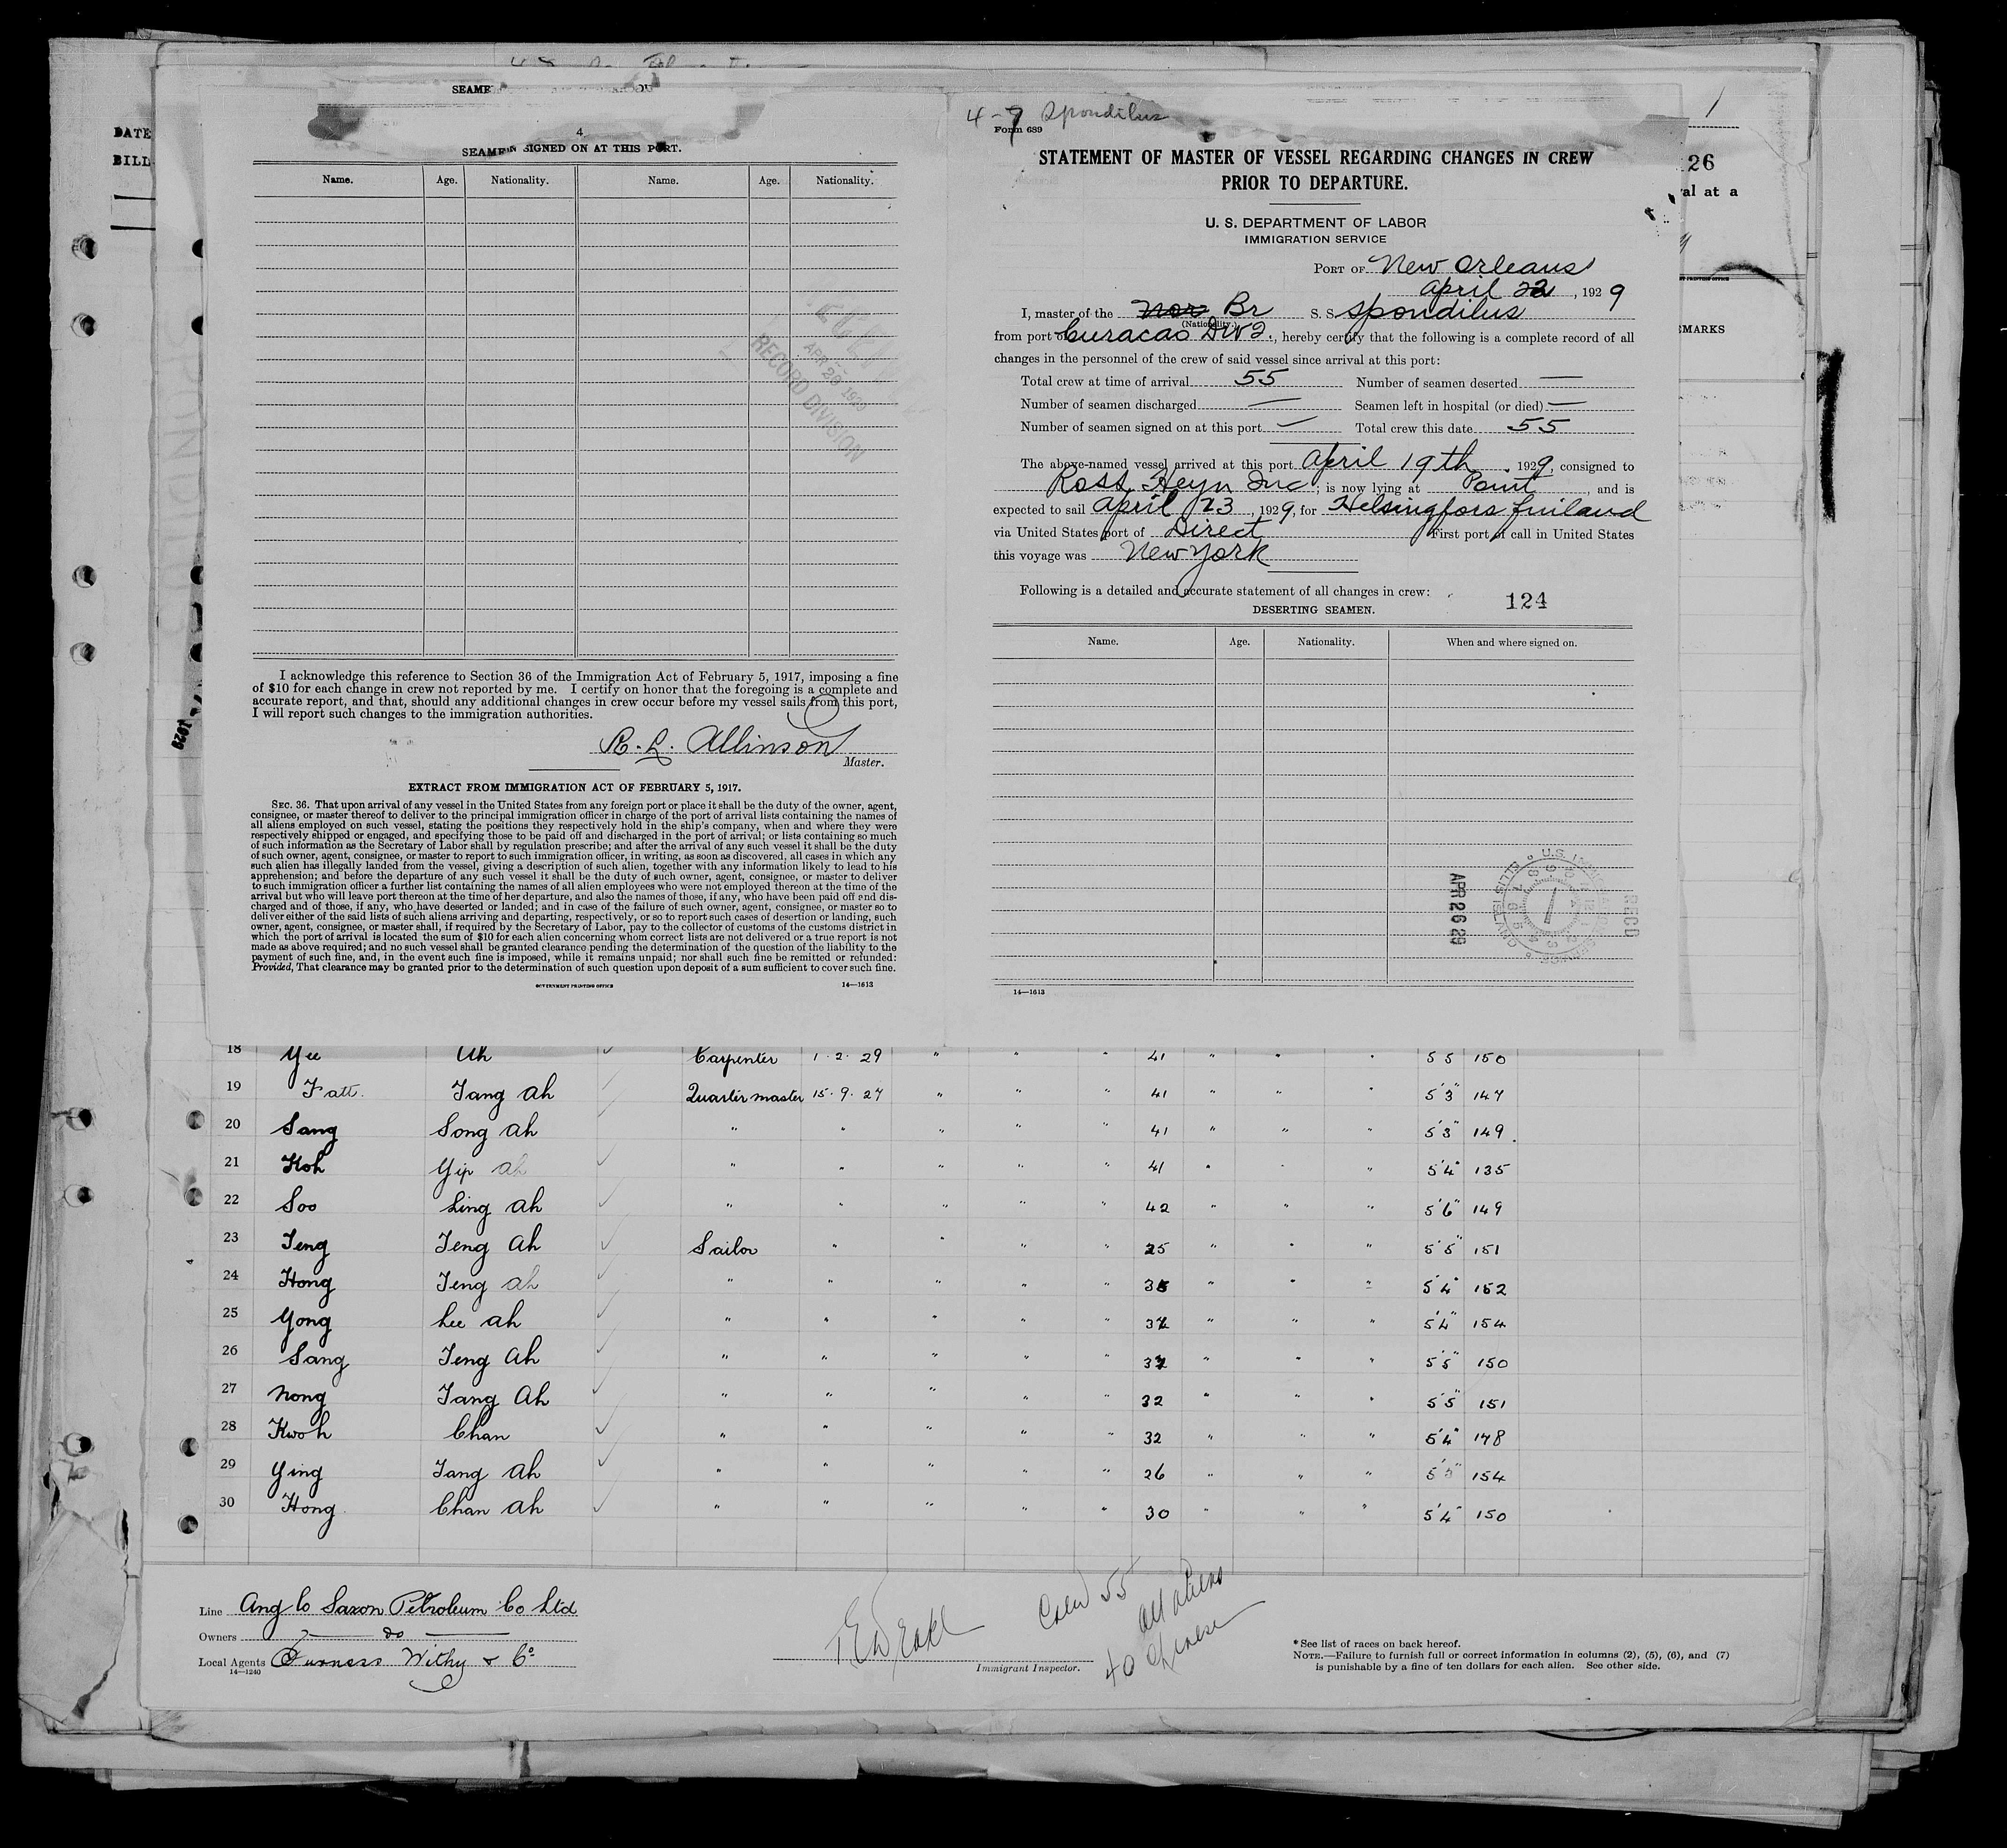 DATE
BILL
1
26
val at a
EMARKS
SEAME
4
SEAMEN SIGNED ON AT THIS PORT.
Name. Age. Nationality. Name. Age. Nationality.
APR 26 1929
RECORD DIVISION
I acknowledge this reference to Section 36 of the Immigration Act of February 5, 1917, imposing a fine
of $10 for each change in crew not reported by me. I certify on honor that the foregoing is a complete and
accurate report, and that, should any additional changes in crew occur before my vessel sails from this port,
I will report such changes to the immigration authorities.
R. L. Allinson
Master.
EXTRACT FROM IMMIGRATION ACT OF FEBRUARY 5, 1917.
SEC. 36. That upon arrival of any vessel in the United States from any foreign port or place it shall be the duty of the owner, agent,
consignee, or master thereof to deliver to the principal immigration officer in charge of the port of arrival lists containing the names of
all aliens employed on such vessel, stating the positions they respectively hold in the ship's company, when and where they were
respectively shipped or engaged, and specifying those to be paid off and discharged in the port of arrival; or lists containing so much
of such information as the Secretary of Labor shall by regulation prescribe; and after the arrival of any such vessel it shall be the duty
of such owner, agent, consignee, or master to report to such immigration officer, in writing, as soon as discovered, all cases in which any
such alien has illegally landed from the vessel, giving a description of such alien, together with any information likely to lead to his
apprehension; and before the departure of any such vessel it shall be the duty of such owner, agent, consignee, or master to deliver
to such immigration officer a further list containing the names of all alien employees who were not employed thereon at the time of the
arrival but who will leave port thereon at the time of her departure, and also the names of those, if any, who have been paid off and dis-
charged and of those, if any, who have deserted or landed; and in case of the failure of such owner, agent, consignee, or master so to
deliver either of the said lists of such aliens arriving and departing, respectively, or so to report such cases of desertion or landing, such
owner, agent, consignee, or master shall, if required by the Secretary of Labor, pay to the collector of customs of the customs district in
which the port of arrival is located the sum of $10 for each alien concerning whom correct lists are not delivered or a true report is not
made as above required; and no such vessel shall be granted clearance pending the determination of the question of the liability to the
payment of such fine, and, in the event such fine is imposed, while it remains unpaid; nor shall such fine be remitted or refunded:
Provided, That clearance may be granted prior to the determination of such question upon deposit of a sum sufficient to cover such fine.
GOVERNMENT PRINTING OFFICE 14—1613
4-9 Spondilus
Form 689
STATEMENT OF MASTER OF VESSEL REGARDING CHANGES IN CREW
PRIOR TO DEPARTURE.
U. S. DEPARTMENT OF LABOR
IMMIGRATION SERVICE
PORT OF New Orleans
April 22, 1929
I, master of the Nor Br S. S. Spondilus
(Nationality.)
from port of Curacao DWI., hereby certify that the following is a complete record of all
changes in the personnel of the crew of said vessel since arrival at this port:
Total crew at time of arrival 55 Number of seamen deserted —
Number of seamen discharged — Seamen left in hospital (or died) —
Number of seamen signed on at this port — Total crew this date 55
The above-named vessel arrived at this port April 19th, 1929, consigned to
Ross Heyn Inc; is now lying at Point, and is
expected to sail April 23, 1929, for Helsingfors Finland
via United States port of Direct First port of call in United States
this voyage was New York
Following is a detailed and accurate statement of all changes in crew:
124
DESERTING SEAMEN.
Name. Age. Nationality. When and where signed on.
APR 26 29
REC'D
14—1613
1929
18 Yee Ah Carpenter 1.2.29 " " " 41 " " " 5 5 150
19 Fatt. Tang Ah Quartermaster 15.9.27 " " " 41 " " " 5'3" 147
20 Sang Song Ah " " " " " 41 " " " 5'3" 149.
21 Koh Yip Ah " " " " " 41 " " " 5'4" 135
22 Soo Ling Ah " " " " " 42 " " " 5'6" 149
23 Teng Teng Ah Sailor " " " " 25 " " " 5'5" 151
24 Hong Teng Ah " " " " " 35 " " " 5'4" 152
25 Yong Lee Ah " " " " " 32 " " " 5'4" 154
26 Sang Teng Ah " " " " " 32 " " " 5'5" 150
27 Nong Tang Ah " " " " " 32 " " " 5'5" 151
28 Kwoh Chan " " " " " 32 " " " 5'4" 148
29 Ying Tang Ah " " " " " 26 " " " 5'5" 154
30 Hong Chan Ah " " " " " 30 " " " 5'4" 150
Line Anglo Saxon Petroleum Co Ltd
Owners — do —
Local Agents Furness Withy & Co
14—1240
Immigrant Inspector.
Crew 55
all aliens
40 Chinese
*See list of races on back hereof.
NOTE.—Failure to furnish full or correct information in columns (2), (5), (6), and (7)
is punishable by a fine of ten dollars for each alien. See other side.